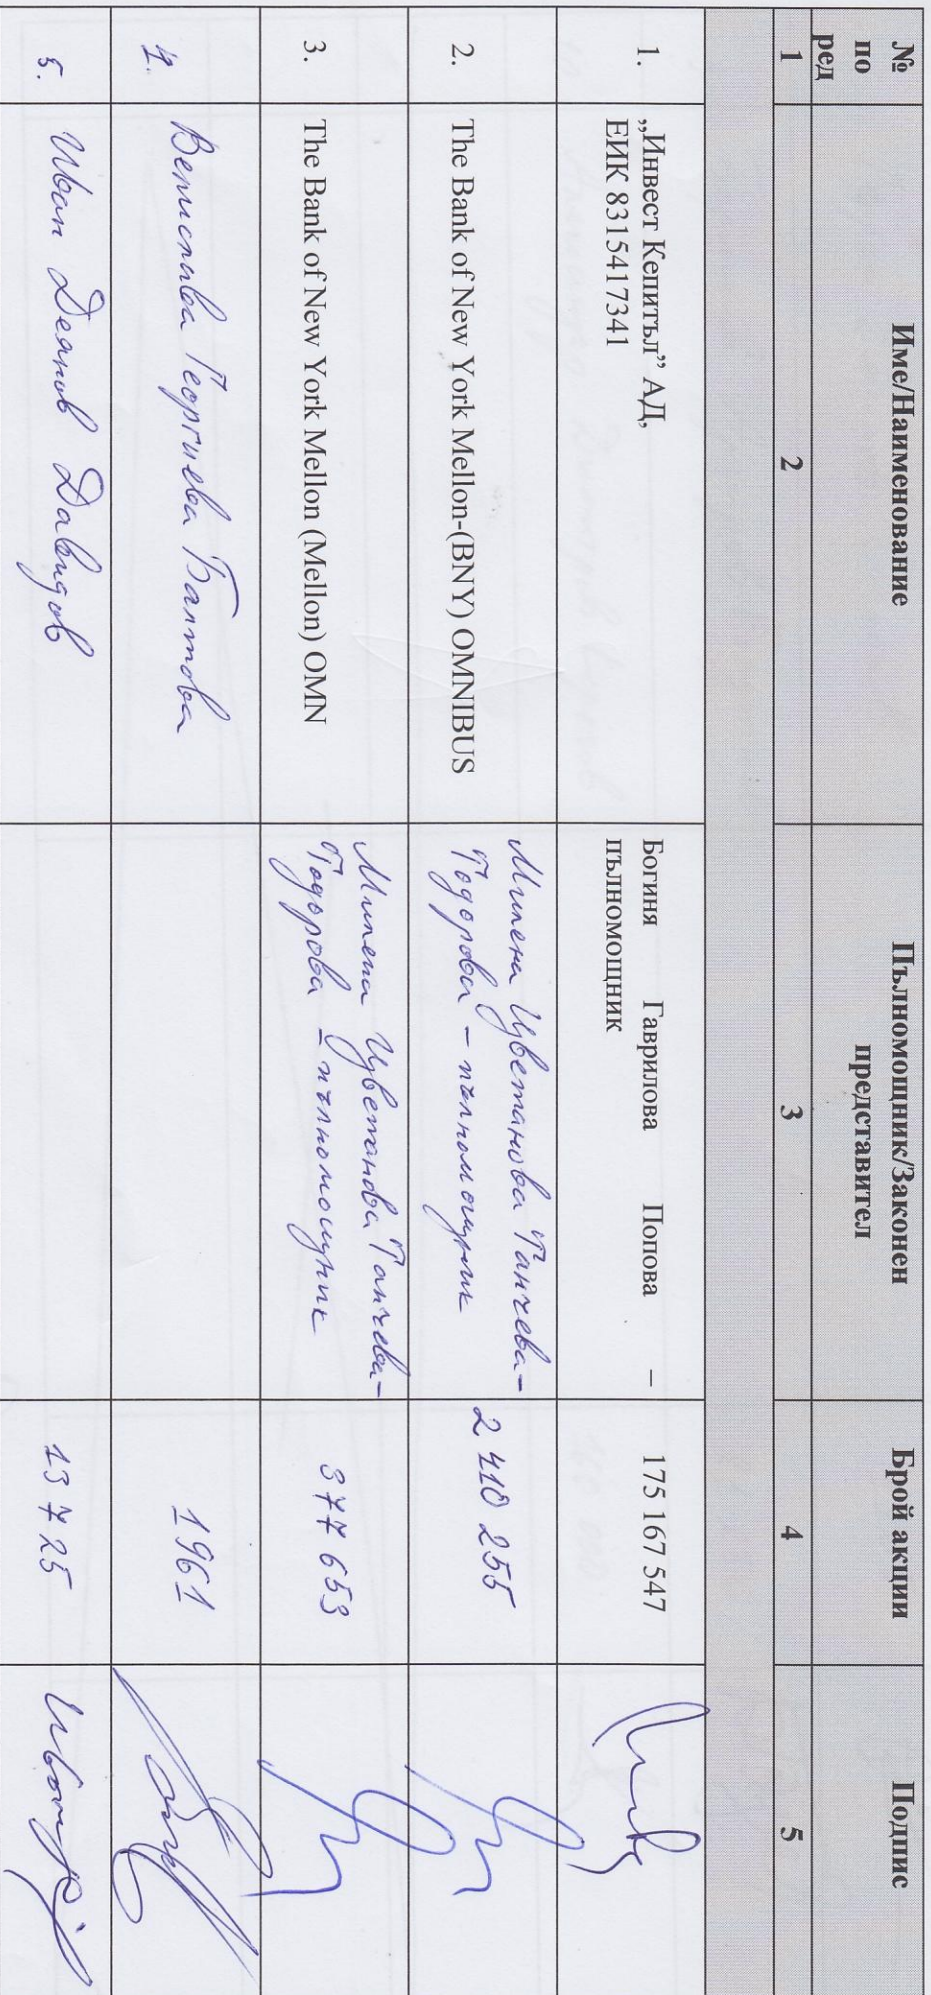 № по ред
Име/Наименование
Пълномощник/Законен представител
Брой акции
Подпис
1
2
3
4
5
1.
„Инвест Кепитъл” АД,
ЕИК 831541734l
Богиня Гаврилова Попова –
пълномощник
175 167 547
2.
The Bank of New York Mellon-(BNY) OMNIBUS
Милена Цветанова Танчева-
Тодорова – пълномощник
2 410 255
3.
The Bank of New York Mellon (Mellon) OMN
Милена Цветанова Танчева-
Тодорова – пълномощник
377 653
4.
Велислава Георгиева Балтова
1961
5.
Иван Деянов Давидов
13 725